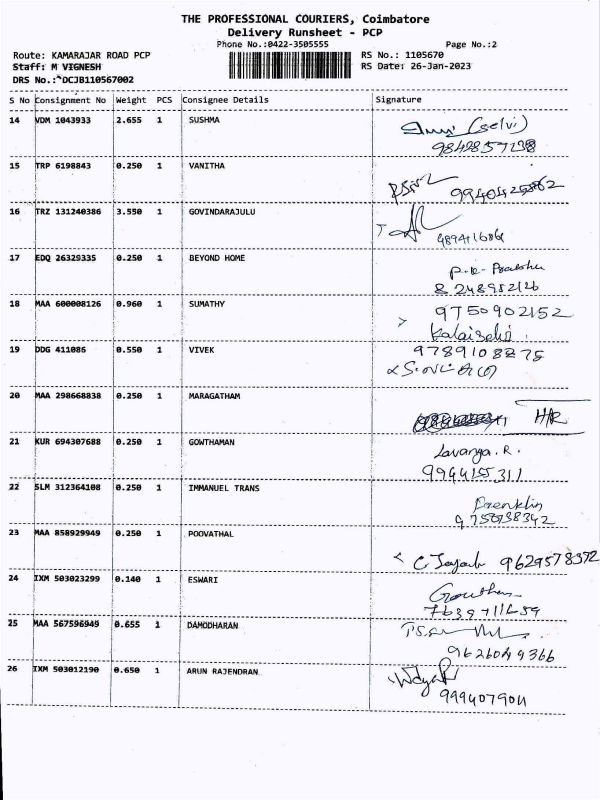 THE PROFESSIONAL COURIERS, Coimbatore
Delivery Runsheet - PCP
Phone No.:0422-3505555 Page No.:2
Route: KAMARAJAR ROAD PCP RS No.: 1105670
Staff: M VIGNESH RS Date: 26-Jan-2023
DRS No.: DCJB110567002
S No Consignment No Weight PCS Consignee Details Signature
14 VDM 1043933 2.655 1 SUSHMA (selvi)
9842857138
15 TRP 6198843 0.250 1 VANITHA
16 TRZ 131240386 3.550 1 GOVINDARAJULU
17 EDQ 26329335 0.250 1 BEYOND HOME
8248952126
18 MAA 600008126 0.960 1 SUMATHY 9750902152
Kalaiselvi
19 DDG 411086 0.550 1 VIVEK 9789108275
20 MAA 298668838 0.250 1 MARAGATHAM
21 KUR 694307688 0.250 1 GOWTHAMAN Lavanya. R.
9944155311
22 SLM 312364108 0.250 1 IMMANUEL TRANS Frenklin
9750138342
23 MAA 858929949 0.250 1 POOVATHAL
9629578372
24 IXM 503023299 0.140 1 ESWARI Gowtham
25 MAA 567596949 0.655 1 DAMODHARAN
9626049366
26 IXM 503012190 0.650 1 ARUN RAJENDRAN